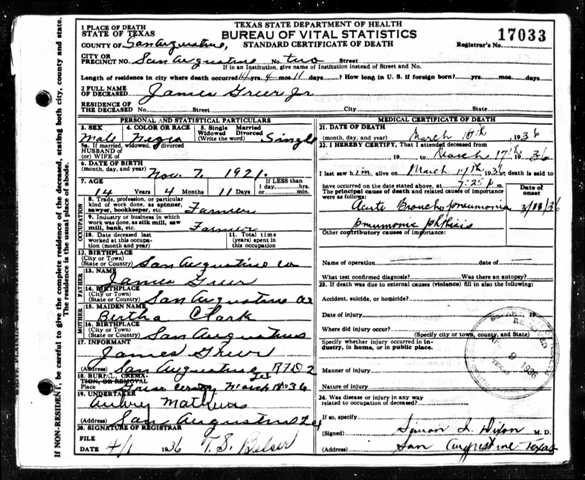 TEXAS STATE DEPARTMENT OF HEALTH
BUREAU OF VITAL STATISTICS
STANDARD CERTIFICATE OF DEATH
17033
Registrar's No.
1 PLACE OF DEATH
STATE OF TEXAS
COUNTY OF San Augustine,
CITY OR
PRECINCT NO. San Augustine No. two Street
If in an Institution, give name of Institution instead of Street and No.
Length of residence in city where death occurred 14 yrs. 4 mos. 11 days. ? How long in U. S. if foreign born? yrs. mos. days
2 FULL NAME OF DECEASED James Greer Jr
RESIDENCE OF
THE DECEASED No. Street City State
PERSONAL AND STATISTICAL PARTICULARS
3. SEX
Male
4. COLOR OR RACE
Negro
5. Single Married
Widowed Divorced
(Write the word) Single
5a. If married, widowed, divorced
HUSBAND OF
(or) WIFE OF
6. DATE OF BIRTH
Nov. 7, 1921.
7. AGE
14 Years 4 Months 11 Days
If LESS than 1 day
hrs. min.
8. Trade, profession, or particular
kind of work done, as spinner,
sawyer, bookkeeper, etc. Farmer
9. Industry or business in which
work was done, as silk mill, saw
mill, bank, etc. Farmer
10. Date deceased last
worked at this occupation
(month and year)
11. Total time
(years) spent in this
occupation
12. BIRTHPLACE
City or Town)
(State or Country) San Augustine co
FATHER
13. NAME
James Greer
14. BIRTHPLACE
(City or Town)
(State or Country) San Augustine co
MOTHER
15. MAIDEN NAME
Birtha Clark
16. BIRTHPLACE
(City or Town)
(State or Country) San Augustine
17 INFORMANT
James Greer
(Address) San Augustine, RFD 2
18 BURIAL, CREMATION, OR REMOVAL
Place March 18 36
19. UNDERTAKER
Aubrey Mathews
(Address) San Augustine
20. SIGNATURE OF REGISTRAR
FILE
DATE 4/1 36 T. S.
MEDICAL CERTIFICATE OF DEATH
21. DATE OF DEATH
(month, day, and year) March 18th, 1936
22. I hereby Certify, That I attended deceased
from 19 to March 17th 1936
I last saw him alive on March 17th 1936 death is said to
have occurred on the date stated above, at m.
The principal cause of death and related causes of importance
were as follows:
Date of
onset
Acute Broncho pneumonia
pneumonic phthisis
Other contributory causes of importance:
Name of operation date of
What test confirmed diagnosis? Was there an autopsy?
23. If death was due to external causes (violence) fill in also the following:
Accident, suicide, or homicide?
Date of injury
Where did injury occur?
(Specify city or town, county, and State)
Specify whether injury occurred in industry, in home, or in public place.
Manner of injury
Nature of injury
24. Was disease or injury in any way
related to occupation of deceased?
If so, specify
(Signed) Simon I. Dixon M. D.
San Augustine Texas
9 1936
IF NON-RESIDENT, be careful to give the complete residence of the deceased, stating both, city, county and state.
The residence is the usual place of abode.